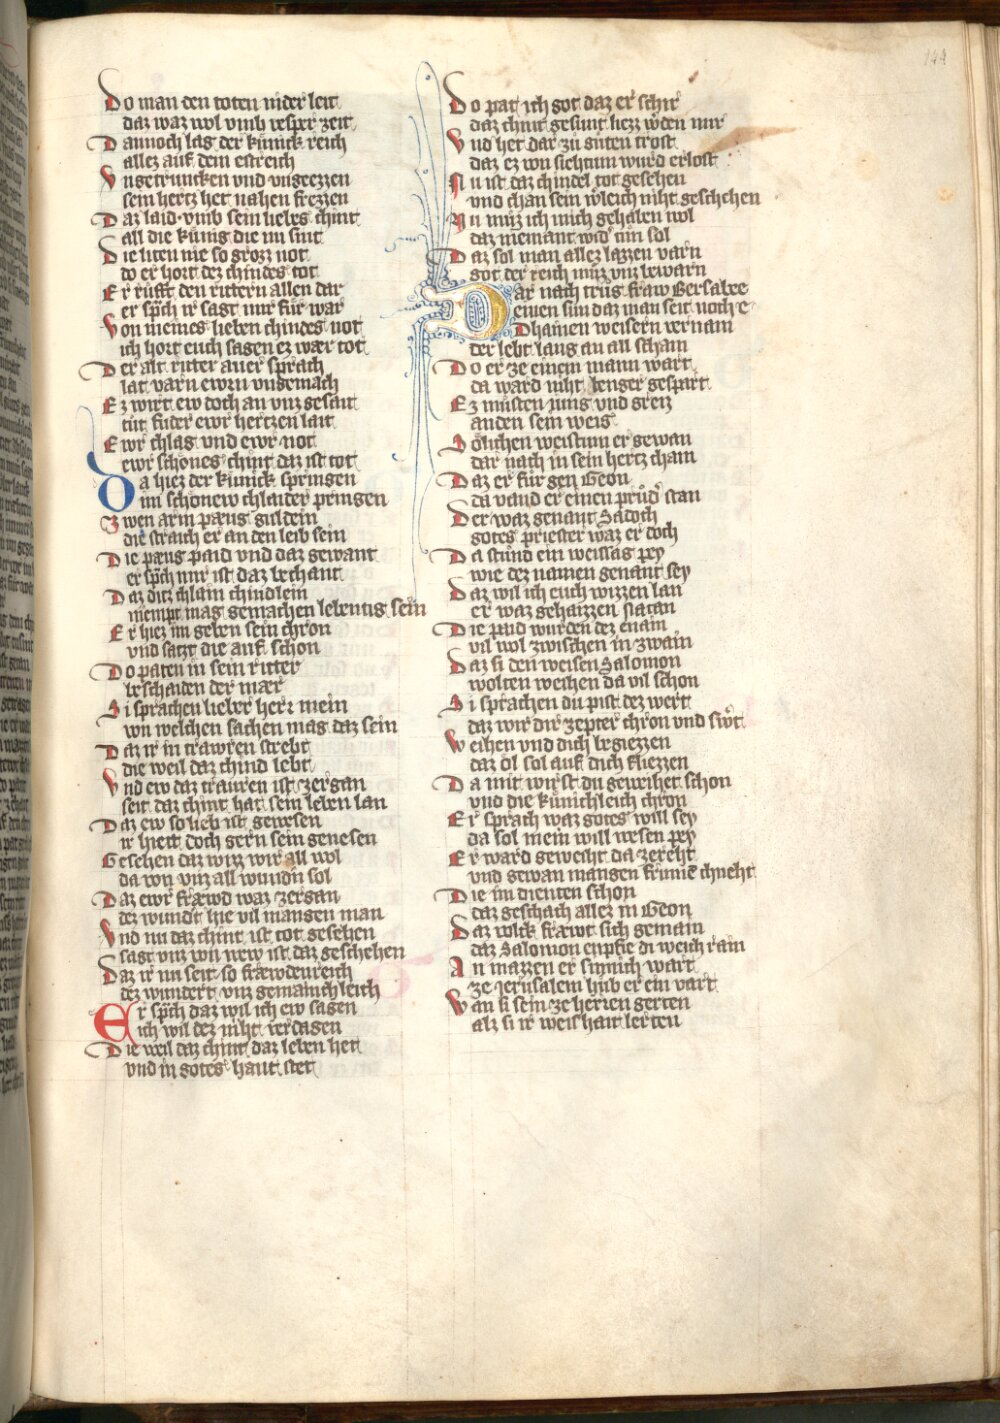 Do man den toten nider leit
daz waz wol vmb vesper zeit
Dannoch lag der künick reich
allez auf dem estreich
Vngetruncken vnd vngeezzen
sein hertz het nahen frezzen
Daz laid vmb sein liebes chint
all die künig die nu sint
Die liten nie so grozz not
do er hort dez chindes tot
Er rüfft den rittern allen dar
er sprͨch ir sagt mir für war
Von meines lieben chindes not
ich hort euch sagen ez wær tot
Der alt ritter auer sprach
lat varn ewrn vngemach
Ez wirt ew doch an vnz gesait
tüt fuder ewr hertzen lait
Ewr chlag vnd ewr not
ewr schönes chint daz ist tot
Da hiez der künick springen
im schönew chlaider pringen
Zwen arm paug guldein
die straich er an den leib sein
Die paug paid vnd daz gewant
er sprͨch mir ist daz bechant
Daz ditz chlain chindlein
niempt mag gemachen lebentig sein
Er hiez im geben sein chron
vnd satzt die auf schon
Do paten in sein ritter
beschaiden der mær
Si sprachen lieber herr mein
von welchen sachen mag daz sein
Daz ir in trawren strebt
die weil daz chind lebt
Vnd ew daz trauren ist zergan
seit daz chint hat sein leben lan
Daz ew so lieb ist gewesen
ir hiett doch gern sein genesen
Gesehen daz wizz wir all wol
da von vnz all wundern sol
Daz ewr fræwd waz zergan
dez wundt hie vil mangen man
Vnd nu daz chint ist tot gesehen
sagt vnz von wew ist daz geschehen
Daz ir nu seit so fræwdenreich
dez wundert vnz gemainchleich
Er sprͨch daz wil ich ew sagen
euch wil dez niht verdagen
Die weil daz chint daz leben het
vnd in gotes hant stet
Do pat ich got daz er schir
daz chint gesunt liezz werden mir
Vnd het dar zü güten trost
daz ez von siehtum wurd erlost
Nu ist daz chindel tot gesehen
vnd chan sein weleich niht geschehen
Nu müz ich mich gehaben wol
daz niemant wider tün sol
Daz sol man allez lazzen varn
got der reich müz vnz bewarn
Dar nach trüg fraw Bersabee
einen sun daz man seit noch e
Dhainen weisern vernam
der lebt lang an all scham
Do er ze einem mann wart
da ward niht lenger gespart
Ez müsten jung vnd greiz
an den sein weis
Solichen weistum er gewan
dar nach in sein hertz cham
Daz er für gen Geon
da vand er einen prüder stan
Der waz genant Sadoch
gotes priester waz er doch
Da stünd ein weissag pey
wie dez namen genant sey
Daz wil ich euch wizzen lan
er waz gehaizzen natan
Die paid wurden dez enain
vil wol zwischen in zwain
Daz si den weisen Salomon
wolten weihen da vil schon
Si sprachen du pist dez wert
daz wir dir zepter chron vnd swert
Weihen vnd dich begiezzen
daz öl sol auf dich fliezzen
Da mit wirst du geweihet schon
vnd die künichleich chron
Er sprach waz gotes will sey
da sol mein will wesen pey
Er ward geweiht da zereht
vnd gewan mangen frumen chneht
Die im dienten schon
daz geschach allez in Geon
Daz volck fræwt sich gemain
daz Salomon enpfie di weich rain
An mazzen er sinnich wart
ze Jerusalem hüb er ein vart
Wan si sein ze herren gerten
alz si ir weishait lerten